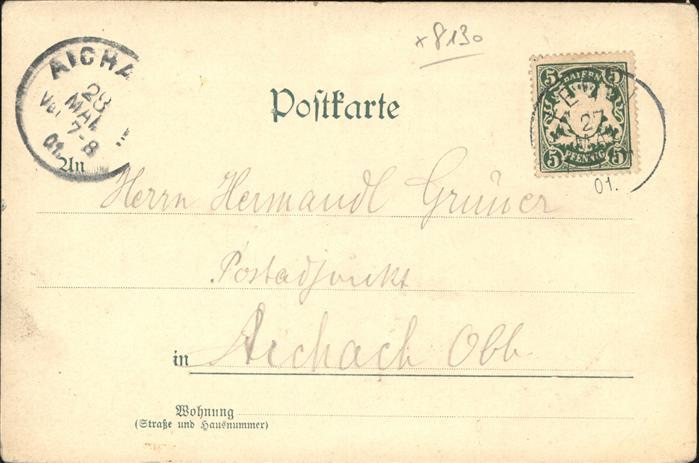 x 8130
AICHA
28
MAI
7-8
01.
BAYERN
5 5
27
MAI
5 PFENNIG 5
01.
Postkarte
An
Herrn Hermandl Grüner
Postadjunkt
in Aichach Obb
Wohnung
(Straße und Hausnummer)